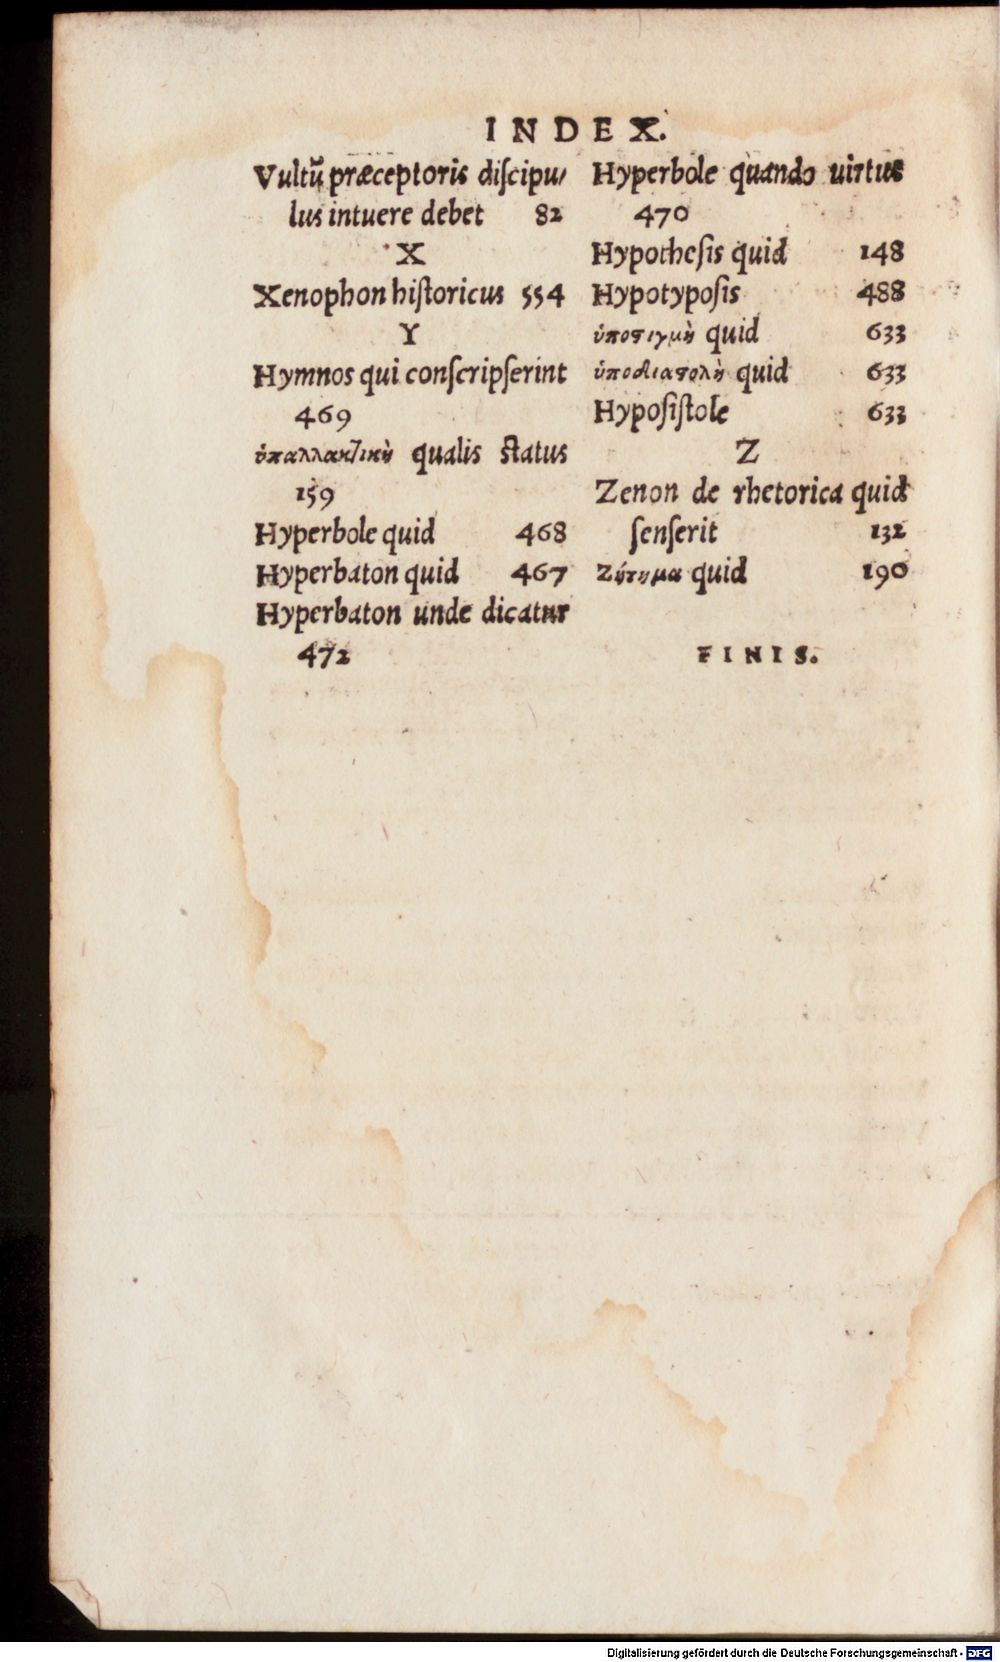 INDEX.
Vultũ præceptoris diſcipu/
lus intuere debet 82
X
Xenophon hiſtoricus 554
Y
Hymnos qui conſcripſerint
469
ὑπαλλακτικὴ qualis ſtatus
159
Hyperbole quid 468
Hyperbaton quid 467
Hyperbaton unde dicatur
472
Hyperbole quando uirtus
470
Hypotheſis quid 148
Hypotypoſis 488
ὑποστιγμὴ quid 633
ὑποδιαστολὴ quid 633
Hypoſiſtole 633
Z
Zenon de rhetorica quid
ſenſerit 132
Ζήτημα quid 190
FINIS.
Digitalisierung gefördert durch die Deutsche Forschungsgemeinschaft - DFG